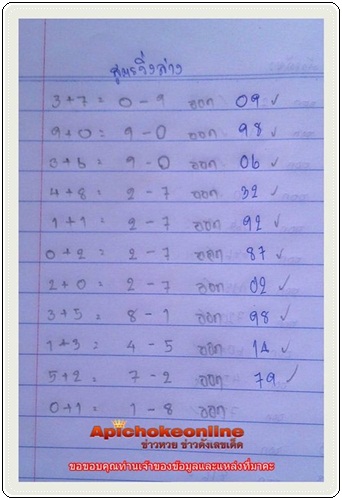 สูตรวิ่งล่าง
3+7= 0-9 ออก 09 ✓
9+0= 9-0 ออก 98 ✓
3+6= 9-0 ออก 06 ✓
4+8= 2-7 ออก 32 ✓
1+1= 2-7 ออก 92 ✓
0+2= 2-7 ออก 87 ✓
2+0= 2-7 ออก 02 ✓
3+5= 8-1 ออก 98 ✓
1+3= 4-5 ออก 14 ✓
5+2= 7-2 ออก 79 ✓
0+1= 1-8 ออก
Apichokeonline
ข่าวหวย ข่าวดังเลขเด็ด
ขอขอบคุณท่านเจ้าของข้อมูลและแหล่งที่มาคะ